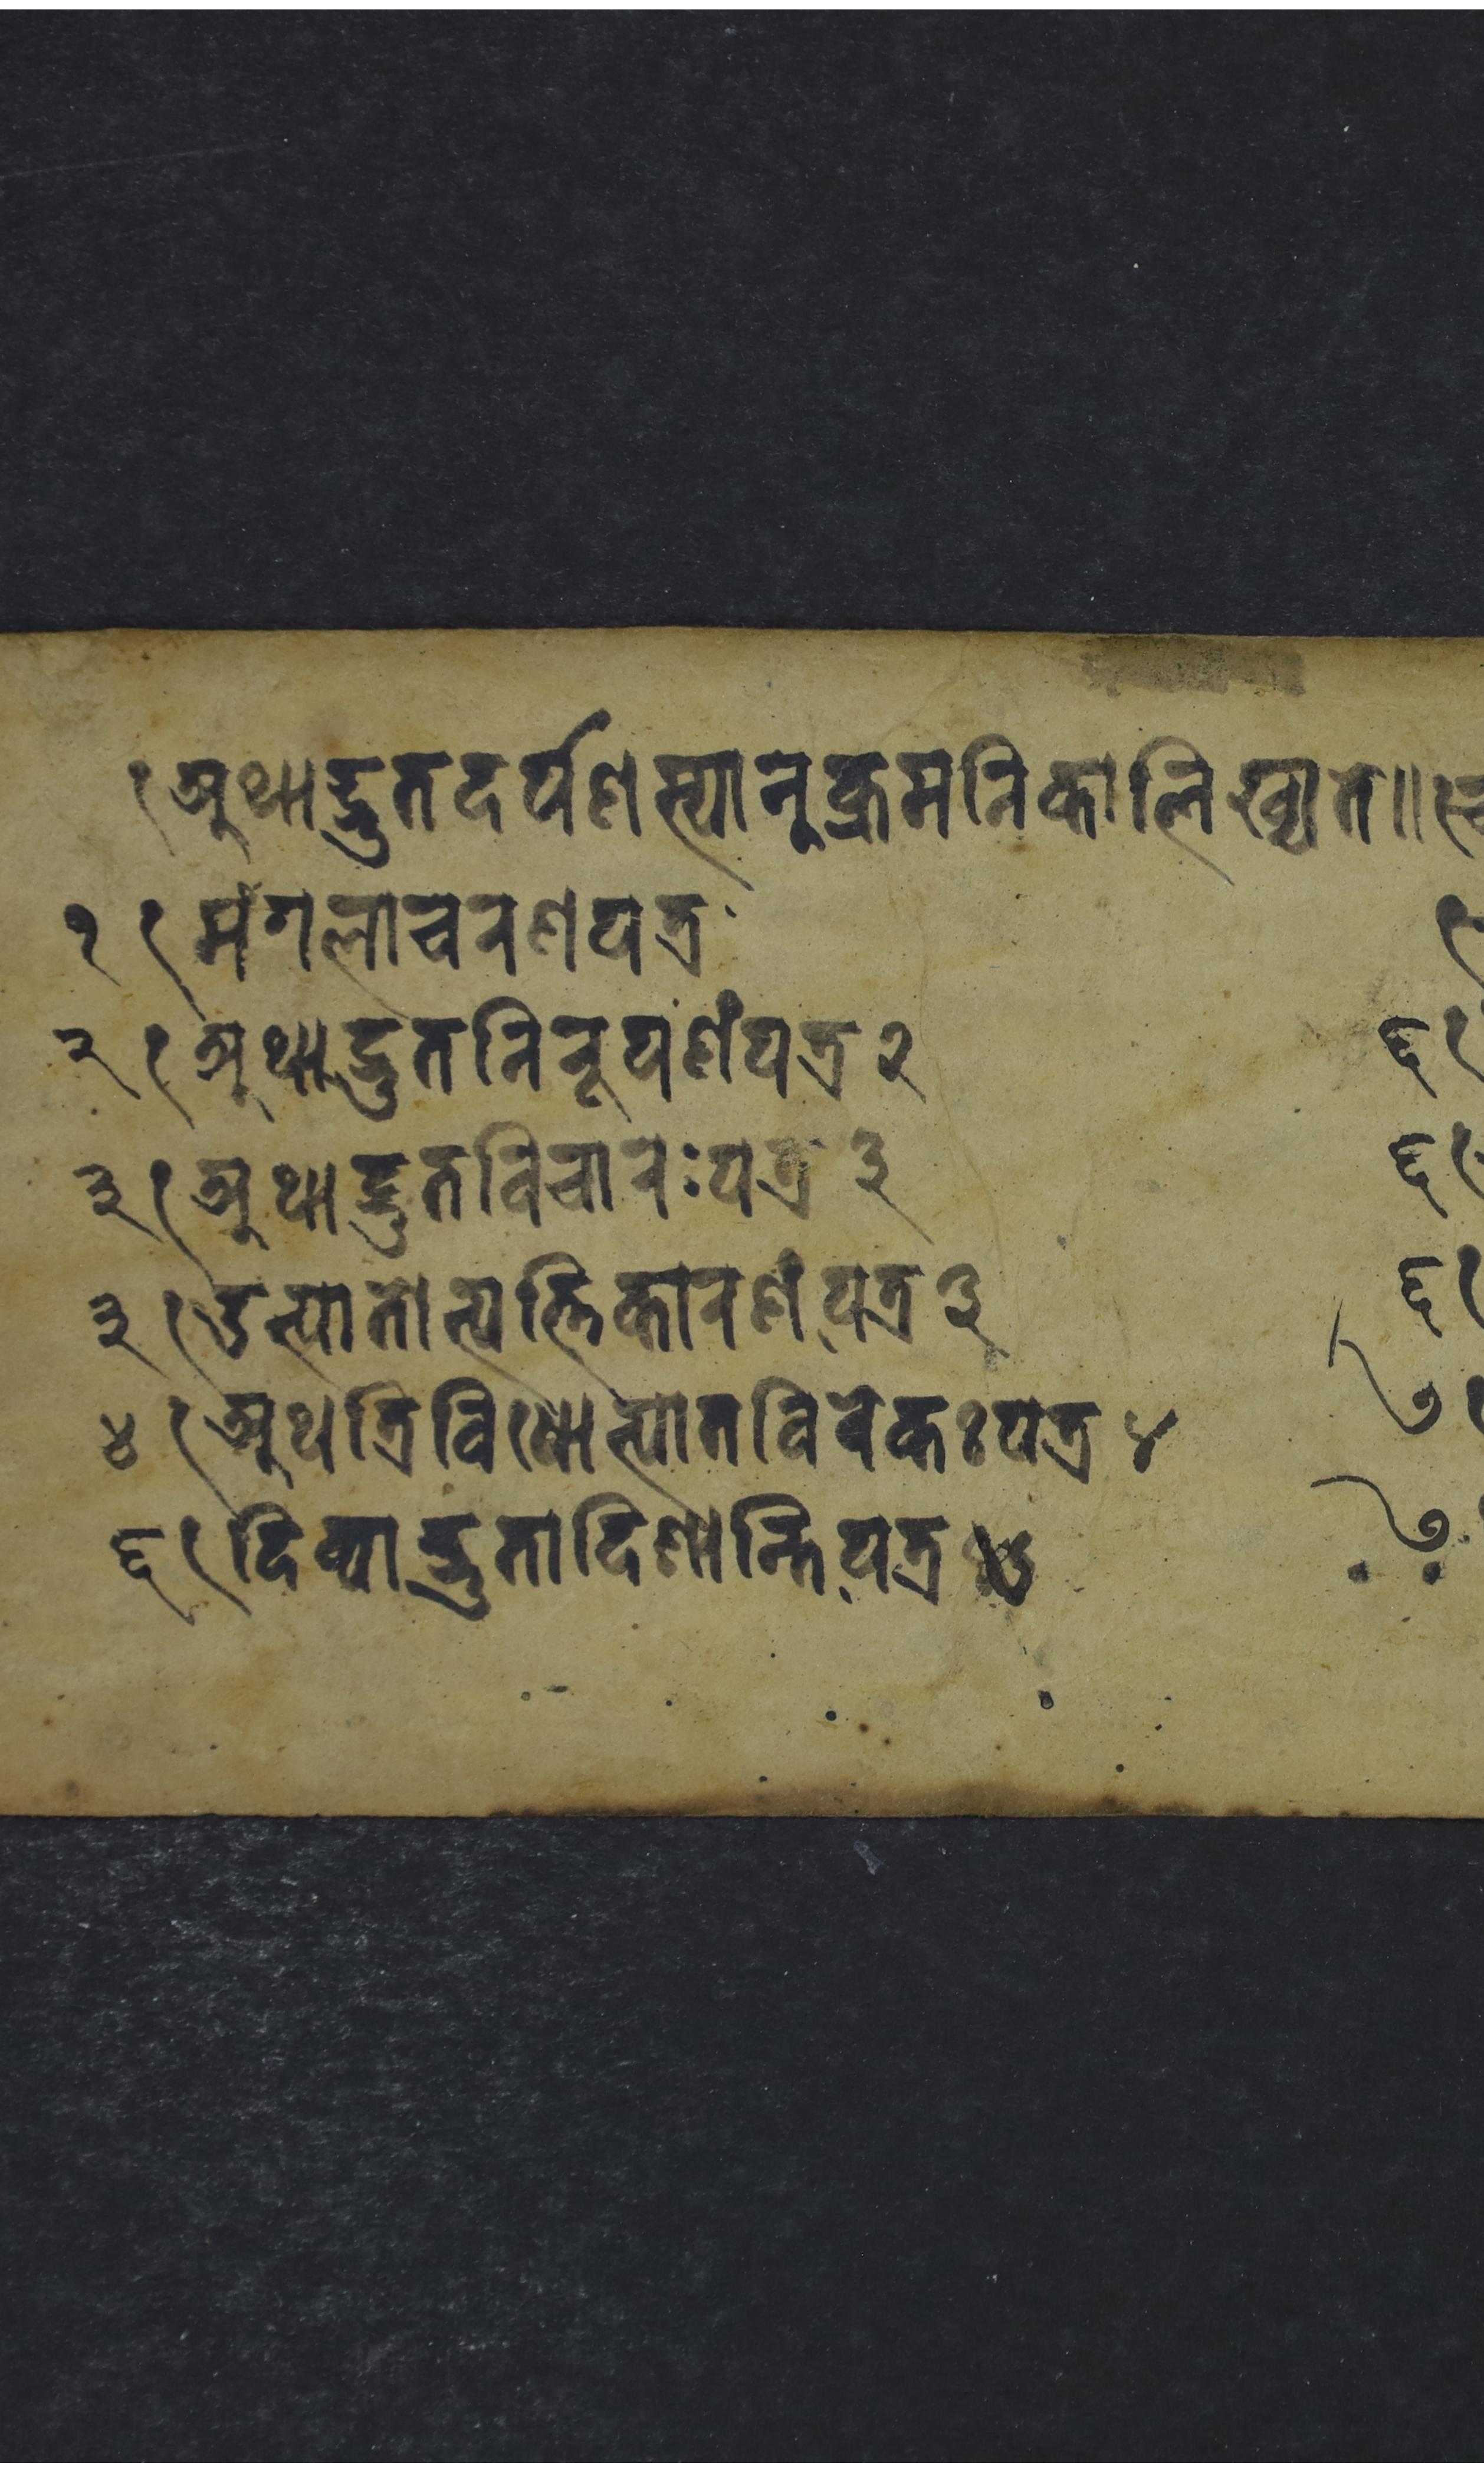 १ अथाद्भुतदर्पणस्यानुक्रमनिका लिख्यते॥
१ १ मंगलाचरणपत्र
२ १ अथाद्भुतनिरूपणंपत्र २
३ १ अथाद्भुतविचारःपत्र ३
३ १ उत्पातोत्पत्तिकारणंपत्र ३
४ १ अथत्रिविधोत्पातविवेकःपत्र ४
६ १ दिव्याद्भुतादिशान्तिपत्र
६ १
६ १
६ १
७
७